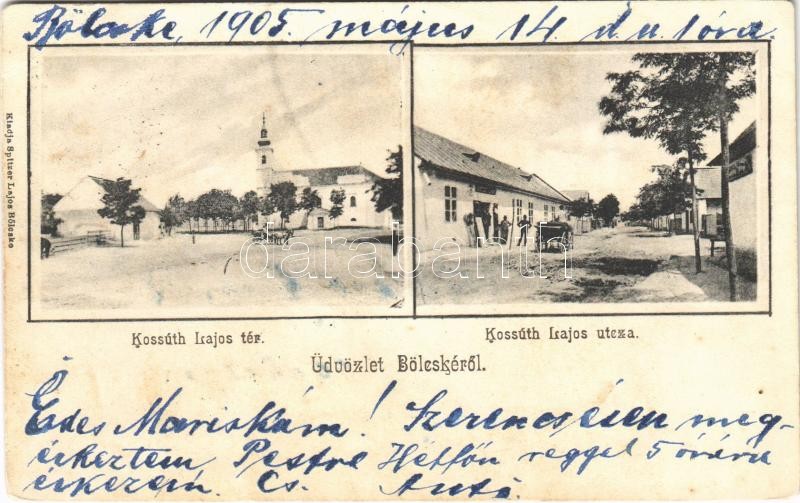 Bölcske, 1905. május 14 d. u. 1 óra
Kiadja Spitzer Lajos Bölcske
darabanth
Kossúth Lajos tér.
Kossúth Lajos utcza.
Üdvözlet Bölcskéről.
Édes Mariskám! Szerencsésen meg-
érkeztem Pestre Hétfőn reggel 5 órára
érkezem. Cs. Antó.